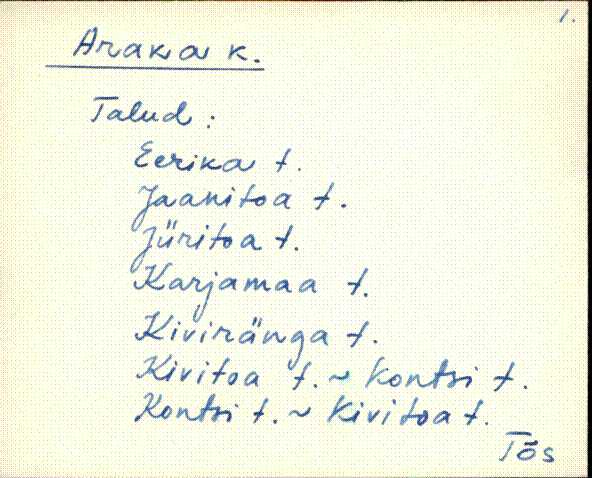 1.
Araka k.
Talud:
Eerika t.
Jaanitoa t.
Jüritoa t.
Karjamaa t.
Kiviränga t.
Kivitoa t. ~ Kontsi t.
Kontsi t. ~ Kivitoa t.
Tõs